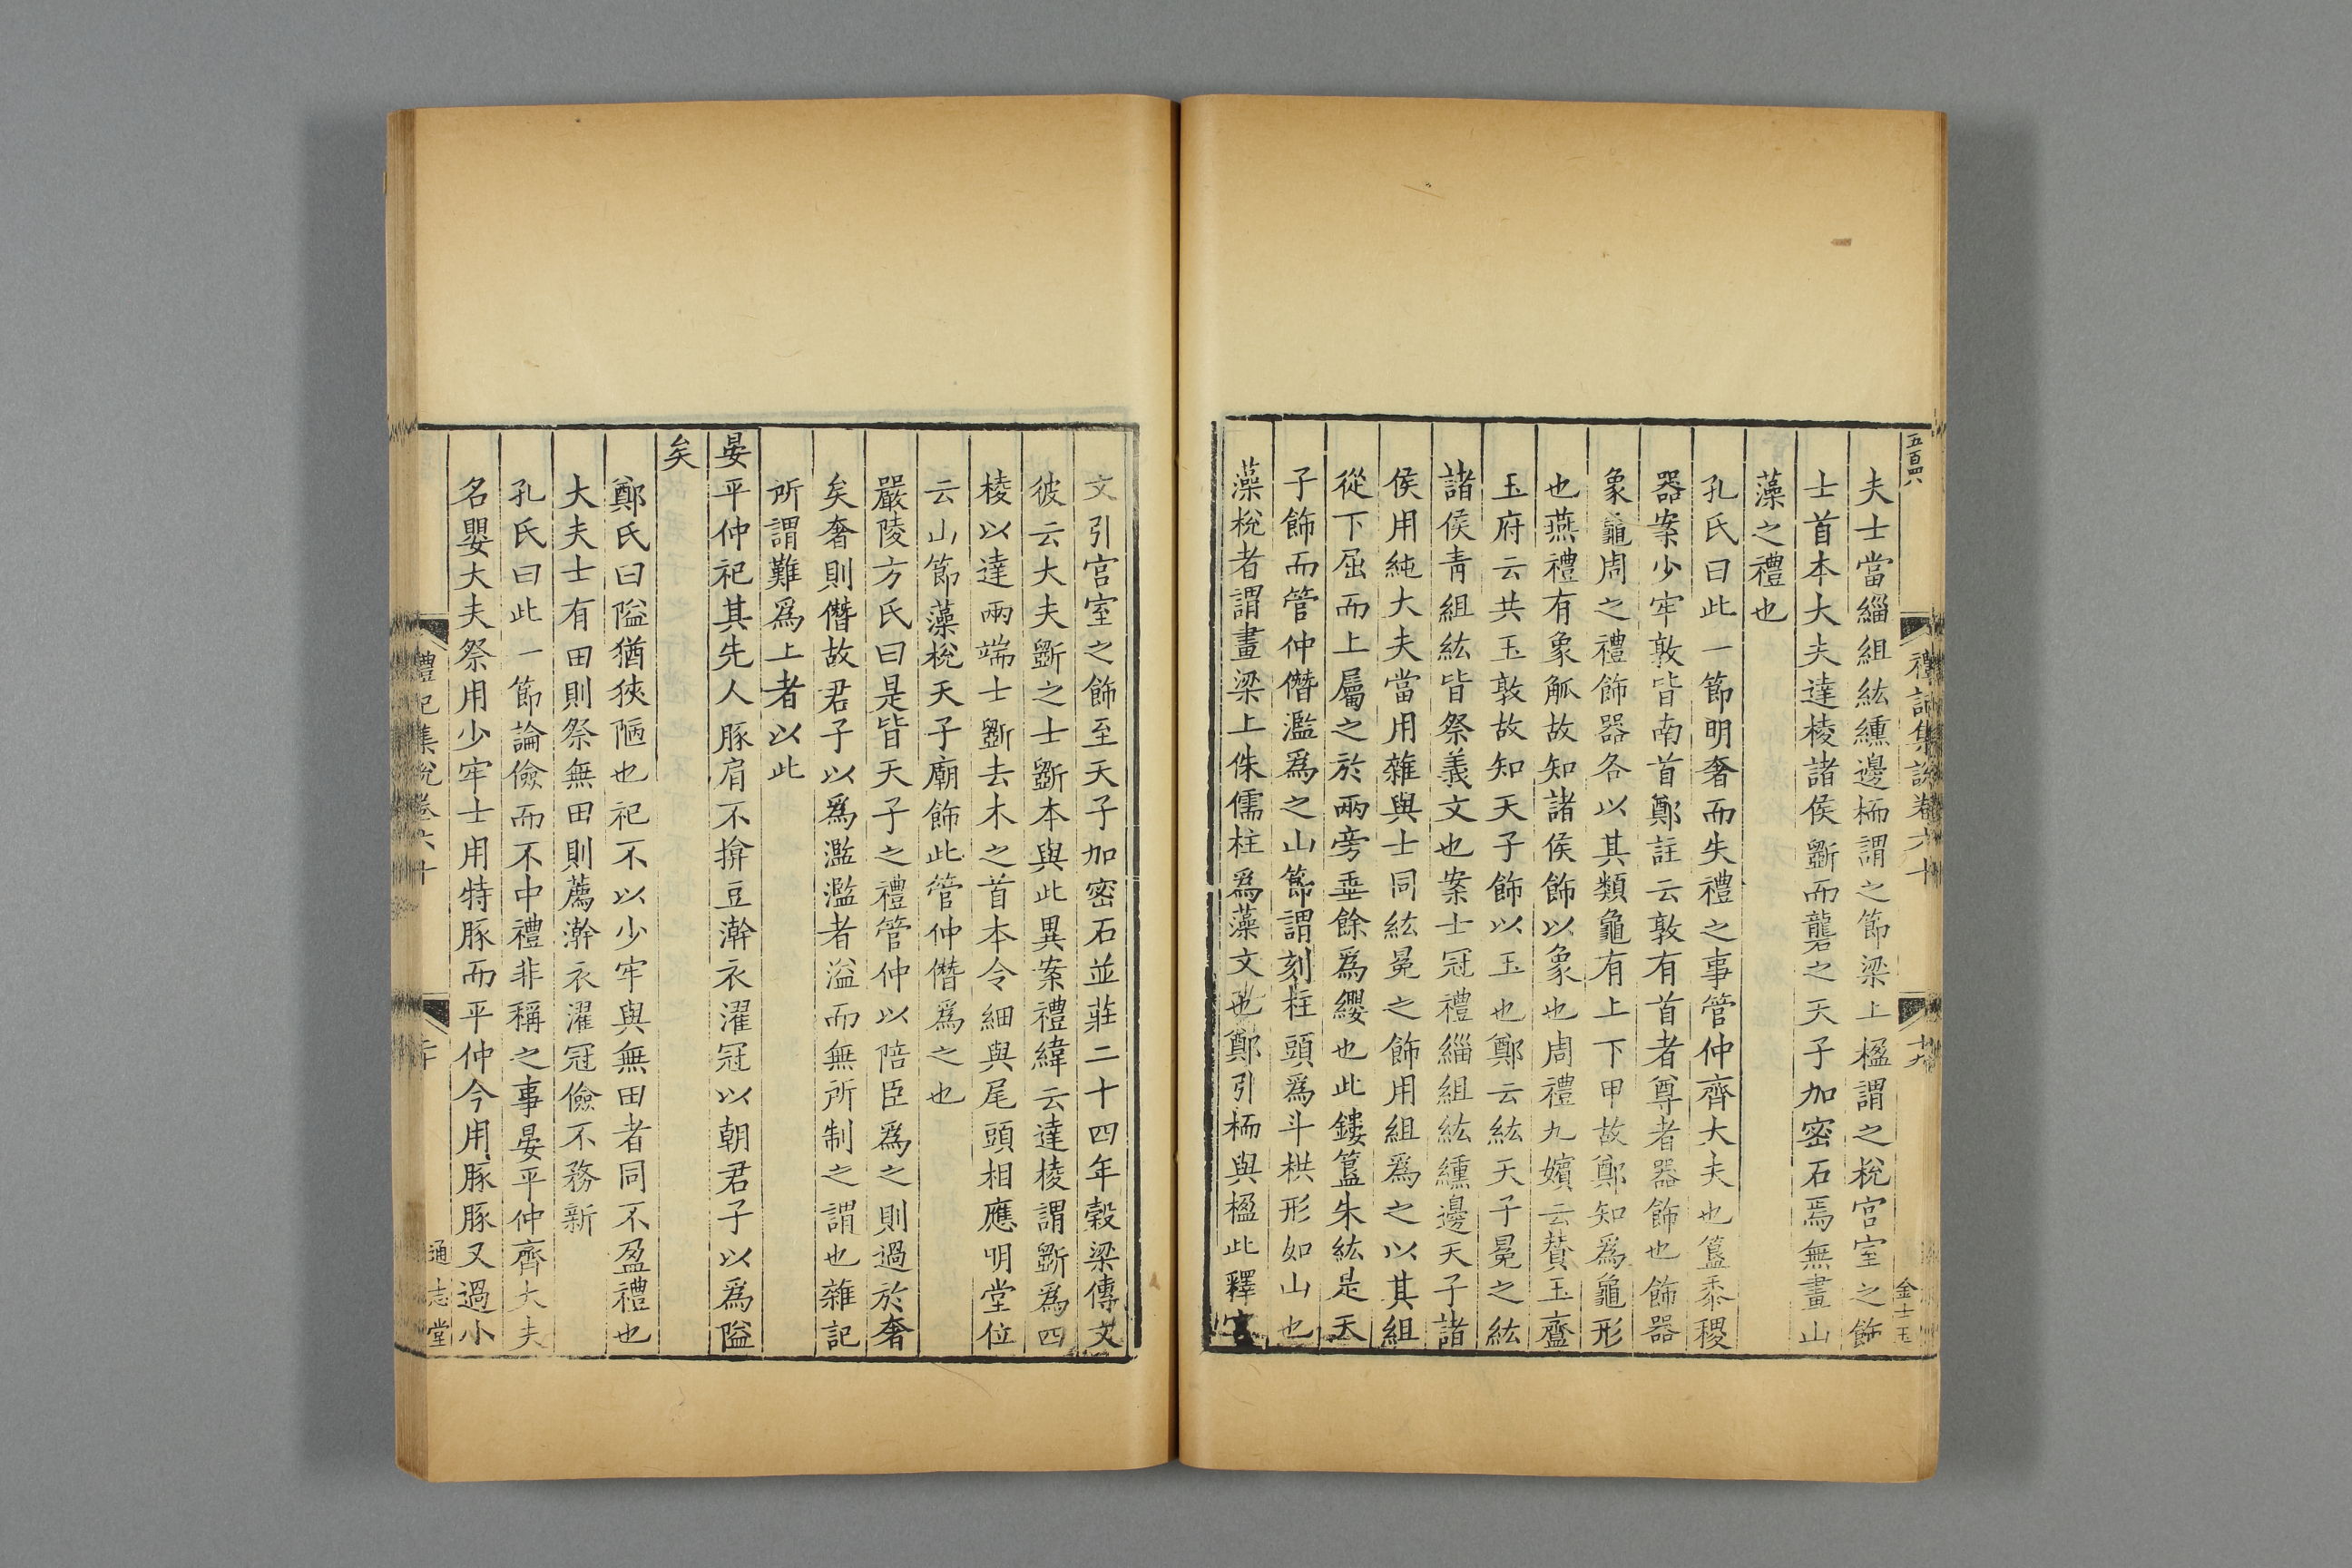 五百四六
禮記集說卷六十
十九
金士玉
夫士當緇組紘纁邊栭謂之節梁上楹謂之梲宮室之飾
士首本大夫達棱諸侯斵而礱之天子加密石焉無畫山
藻之禮也
孔氏曰此一節明奢而失禮之事管仲齊大夫也簋黍稷
器案少牢敦皆南首鄭註云敦有首者尊者器飾也飾器
象龜周之禮飾器各以其類龜有上下甲故鄭知爲龜形
也燕禮有象觚故知諸侯飾以象也周禮九嬪云贊玉齍
玉府云共玉敦故知天子飾以玉也鄭云紘天子冕之紘
諸侯青組紘皆祭義文也案士冠禮緇組紘纁邊天子諸
侯用純大夫當用雜與士同紘冕之飾用組爲之以其組
從下屈而上屬之於兩旁垂餘爲纓也此鏤簋朱紘是天
子飾而管仲僭濫爲之山節謂刻柱頭爲斗栱形如山也
藻梲者謂畫梁上侏儒柱爲藻文也鄭引栭與楹此釋宮
文引宮室之飾至天子加密石並莊二十四年穀梁傳文
彼云大夫斵之士斵本與此異案禮緯云達棱謂斵爲四
棱以達兩端士斵去木之首本令細與尾頭相應明堂位
云山節藻梲天子廟飾此管仲僭爲之也
嚴陵方氏曰是皆天子之禮管仲以陪臣爲之則過於奢
矣奢則僭故君子以爲濫濫者溢而無所制之謂也雜記
所謂難爲上者以此
晏平仲祀其先人豚肩不揜豆澣衣濯冠以朝君子以爲隘
矣
鄭氏曰隘猶狹陋也祀不以少牢與無田者同不盈禮也
大夫士有田則祭無田則薦澣衣濯冠儉不務新
孔氏曰此一節論儉而不中禮非稱之事晏平仲齊大夫
名嬰大夫祭用少牢士用特豚而平仲今用豚豚又過小
禮記集說卷六十
二十
通志堂